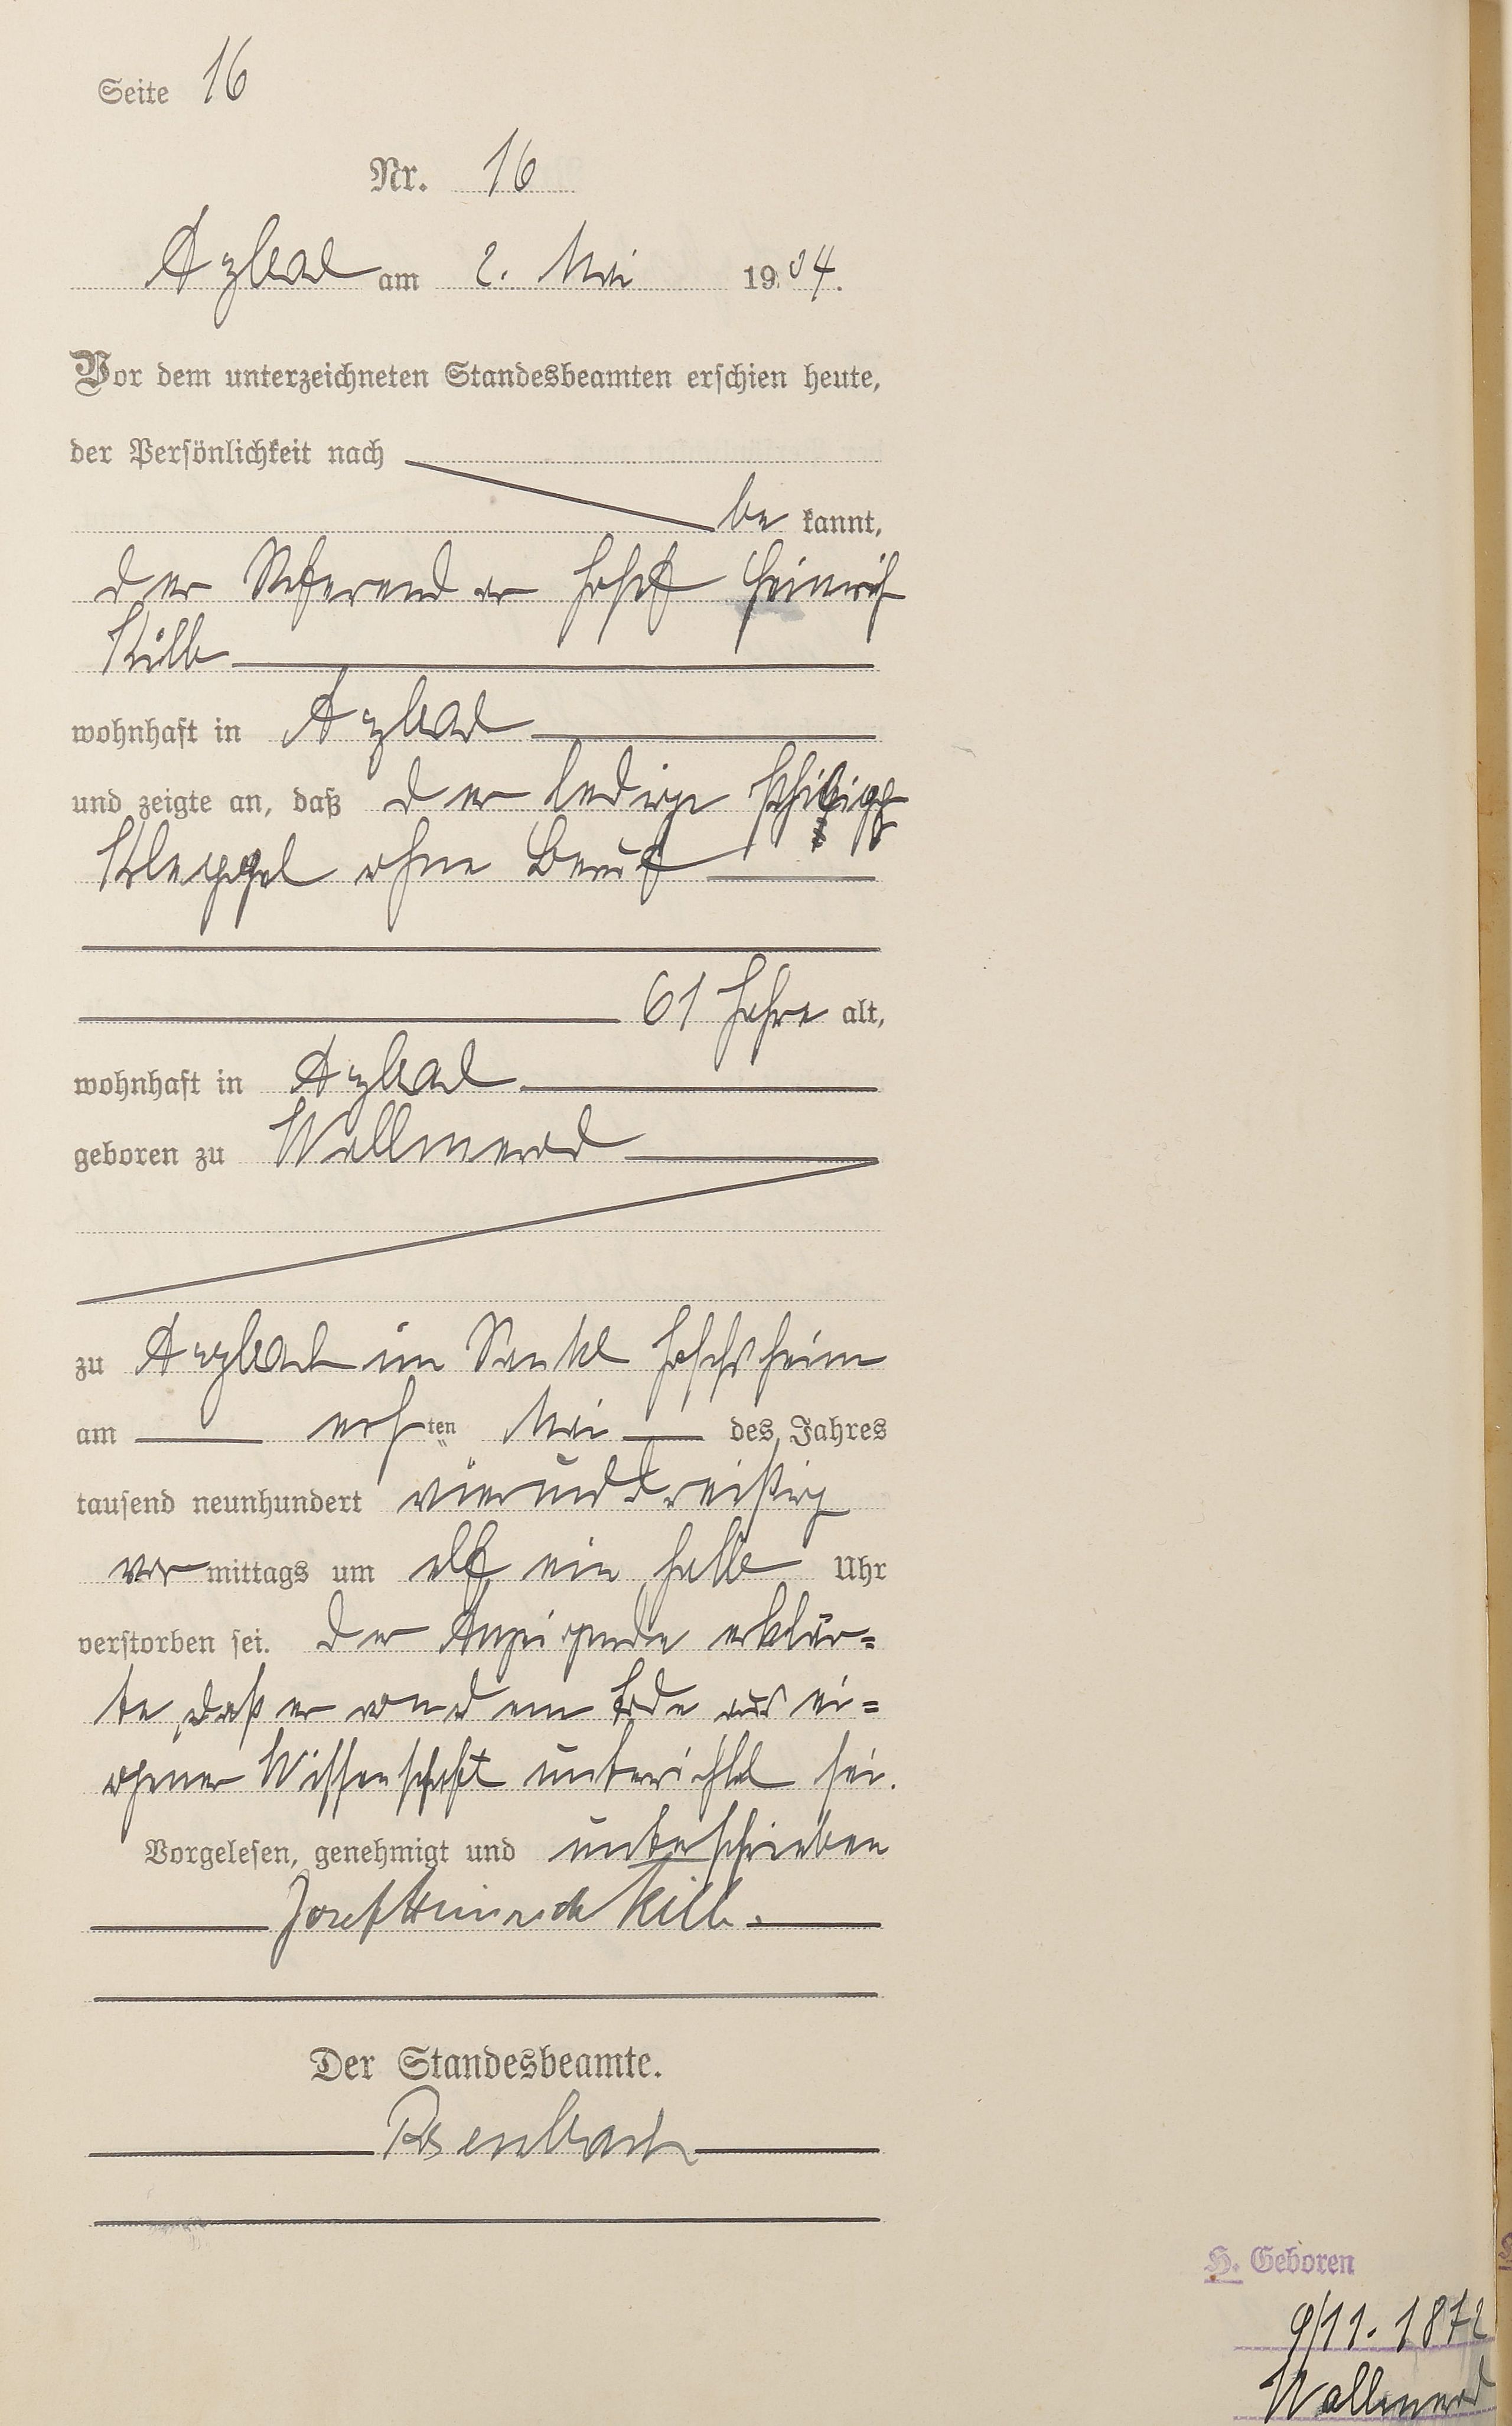 Seite 16
Nr. 16
Arzbach am 2. Mai 1934.
Vor dem unterzeichneten Standesbeamten erschien heute,
der Persönlichkeit nach
be kannt,
der Referendar Josef Heinrich
Killb
wohnhaft in Arzbach
und zeigte an, daß der ledige
ohne Beruf
61 Jahre alt,
wohnhaft in Arzbach
geboren zu Wallmerod
zu Arzbach im Sankt Josefsheim
am ersten Mai des Jahres
tausend neunhundert vierunddreißig
vor mittags um elf ein halb Uhr
verstorben sei. Der Anzeigende erklär=
te, daß er von dem Tode aus ei=
gener Wissenschaft unterrichtet sei.
Vorgelesen, genehmigt und unterschrieben
Josef Heinrich Killb.
Der Standesbeamte.
Rosenbach
H. Geboren
9/11. 1872
Wallmerod